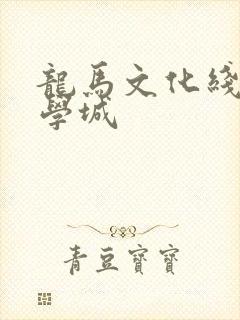 龍馬文化綫
學城
青豆寶寶